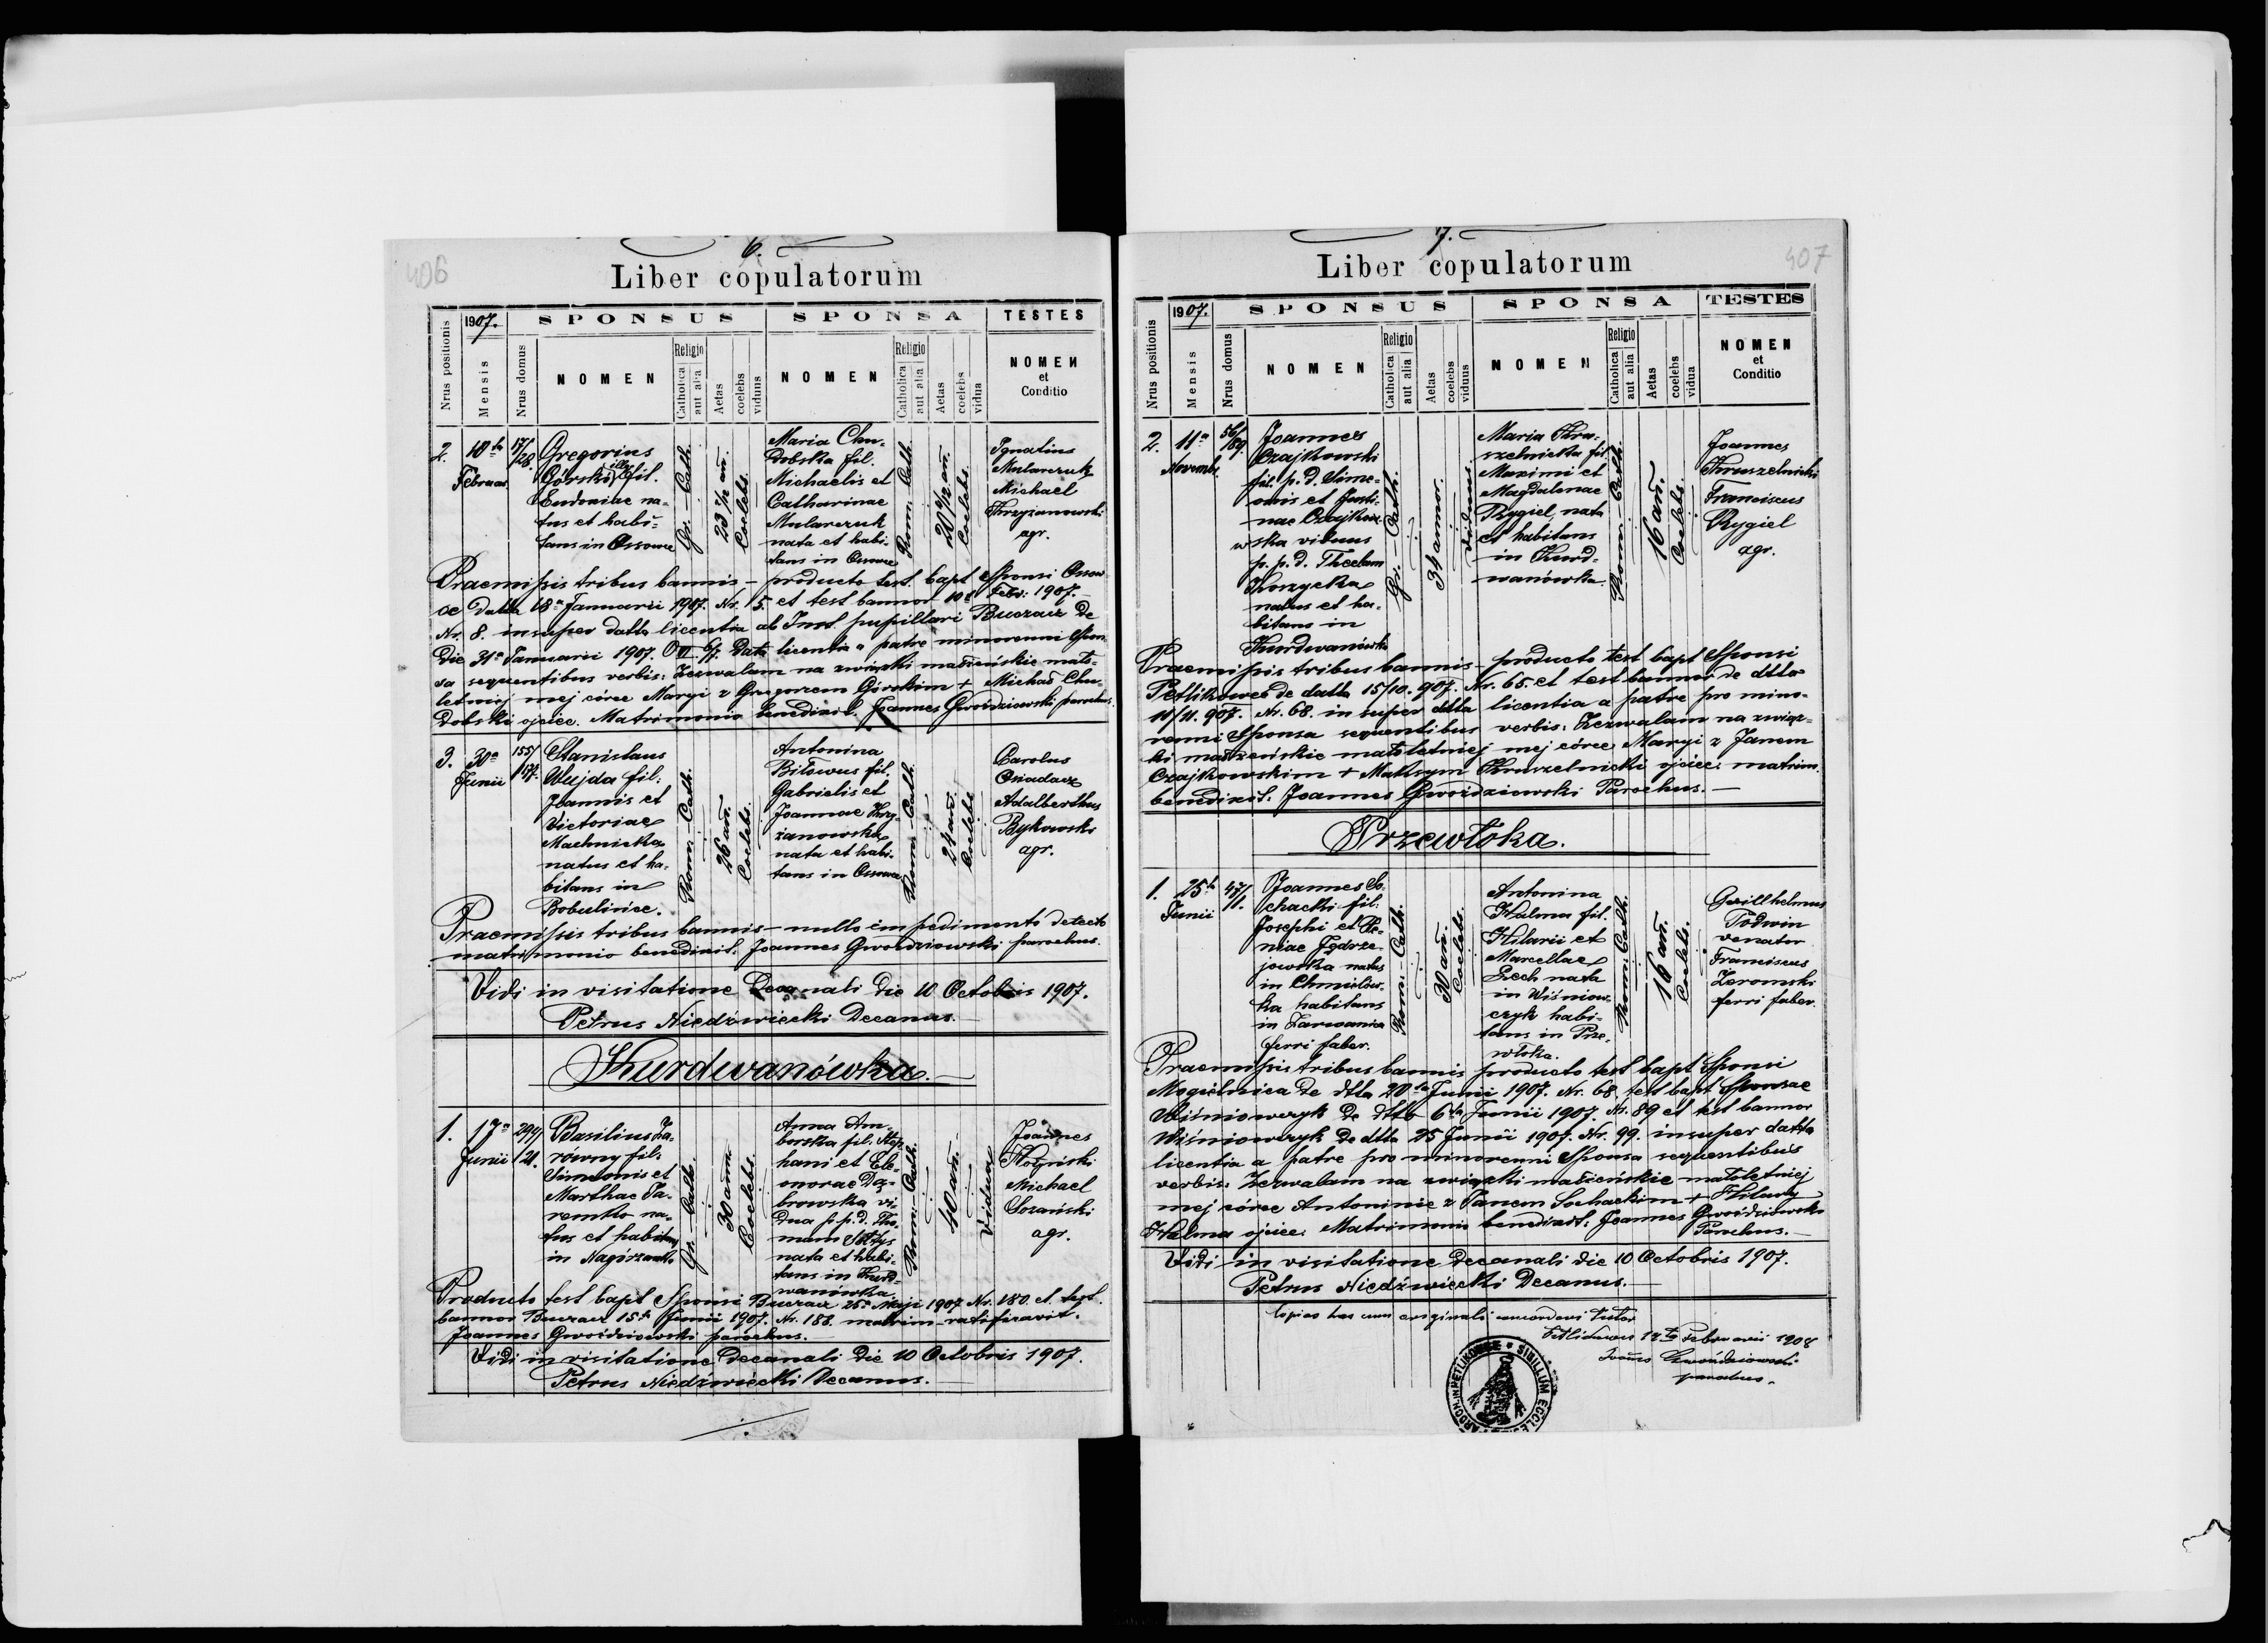 6.
406
Liber copulatorum
Nrus positionis
1907.
Mensis
Nrus domus
SPONSUS
NOMEN
Religio
Catholica
aut alia
Aetas
coelebs
viduus
SPONSA
NOMEN
Religio
Catholica
aut alia
Aetas
coelebs
vidua
TESTES
NOMEN
et
Conditio
2.
10ta
Februar.
17/28
Gregorius
Górski ill. fil.
Eudoxiae na-
tus et habi-
tans in Ossowce
Gr. - Cath.
23 1/2 an.
Coelebs.
Maria Chu-
dobska fil.
Michaelis et
Catharinae
Mularczuk
nata et habi-
tans in Ossowce
Rom. Cath.
Coelebs.
Ignatius
Mularczuk
Michael
Krzyżanowski
agr.
Praemissis tribus bannis - producto test. bapt Sponsi Ossow-
ce datta 18a Januarii 1907. Nr. 5. et test bannor 10t Febr: 1907. -
Nr. 8. insuper datta licentia ab Inst. pupillari Buczacz de
die 31a Januarii 1907. Data licentia a patre minorenni Spon-
sa sequentibus verbis: Zezwalam na związki małżeńskie mało-
letniej mej córce Maryi z Grzegorzem Górskim + Michał Chu-
dobski ojciec. Matrimonio benedixit. Joannes Gwoździowski parochus.
3.
30a
Junii
155/
Stanislaus
Wujda fil:
Joannis et
Victoriae
Machnicka
natus et ha-
bitans in
Bobulińce.
Rom. - Cath.
26 an.
Coelebs.
Antonina
Biłowus fil.
Gabrielis et
Joannae Krzy-
żanowska
nata et habi-
tans in Ossowce
Rom. - Cath.
24 an.
Coelebs
Carolus
Osiadacz
Adalberthus
Bykowski
agr.
Praemissis tribus bannis - nullo impedimento detecto
matrimonio benedixit. Joannes Gwoździowski parochus.
Vidi in visitatione Decanali die 10 Octobris 1907.
Petrus Niedźwiecki Decanus.
Kurdwanówka.
1.
17a
Junii
299/
21.
Basilius Za-
równy fil:
Simeonis et
Marthae Ja-
remko na-
tus et habitans
in Nagórzanka
Gr. - Cath.
30 ann.
Coelebs.
Anna Am-
borska fil. Step-
hani et Ele-
onorae Dą-
browska vi-
dua p. p. d. Tho-
mam Sołtys
nata et habi-
tans in Kurd-
wanówka
Rom. - Cath.
40 an.
Vidua
Joannes
Michael
Sozański
agr.
Producto test bapt. Sponsi Buczacz 25a Maji 1907 Nr. 180. et test.
bannor Buczacz 15t Junii 1907. Nr. 188. matrim-ratificavit.
Joannes Gwoździowski parochus.
Vidi in visitatione Decanali die 10 Octobris 1907.
Petrus Niedźwiecki Decanus.
7.
407
Liber copulatorum
Nrus positionis
1907.
Mensis
Nrus domus
SPONSUS
NOMEN
Religio
Catholica
aut alia
Aetas
coelebs
viduus
SPONSA
NOMEN
Religio
Catholica
aut alia
Aetas
coelebs
vidua
TESTES
NOMEN
et
Conditio
2.
11a
Novemb.
56/
89.
Joannes
Czajkowski
fil. p. d. Sime-
onis et Justi-
nae Czajko-
wska viduus
p. p. d. Theclam
Korzycka
natus et ha-
bitans in
Kurdwanówka
Gr. - Cath.
34 annor.
viduus.
Maria Kru-
szelnicka fil.
Maximi et
Magdalenae
Rygiel, nata
et habitans
in Kurd-
wanówka.
Rom. - Cath.
16 an.
Coelebs.
Joannes
Kruszelnicki
Franciscus
Rygiel
agr.
Praemissis tribus bannis - producto test bapt Sponsi
Petlikowce de datta 15/10. 907. Nr. 65. et test bannor de dtta
11/11. 907. Nr. 68. insuper dtta licentia a patre pro mino-
renni Sponsa sequentibus verbis: Zezwalam na związ-
ki małżeńskie małoletniej mej córce Maryi z Janem
Czajkowskim + Maksym Kruszelnicki ojciec: matrim.
benedixit: Joannes Gwoździowski Parochus. -
Przewłoka.
1.
25ta
Junii
47/
11.
Joannes So-
chacki fil:
Josephi et Xe-
niae Jędrze-
jowska natus
in Chmielów-
ka habitans
in Zarwanica
ferri faber.
Rom: Cath.
30 an.
Coelebs.
Antonina
Halma fil.
Hilarii et
Marcellae
Zech nata
in Wiśniow-
czyk habi-
tans in Prze-
włoka.
Rom: Cath.
16 an.
Coelebs.
Gwillhelmus
Todwin
venator
Franciscus
Zeromski
ferri faber.
Praemissis tribus bannis producto test bapt Sponsi
Mogielnica de dtta 20ta Junii 1907. Nr. 68. test bapt Sponsae
Wiśniowczyk de dtto 6ta Junii 1907. Nr. 89 et test bannor
Wiśniowczyk de dtta 25 Junii 1907. Nr. 99. insuper datta
licentia a patre pro minorenni Sponsa sequentibus
verbis: Zezwalam na związki małżeńskie małoletniej
mej córce Antoninie z Janem Sochackim + Hilary
Halma ojciec. Matrimonio benedixit: Joannes Gwoździowski
Parochus. -
Vidi in visitatione Decanali die 10 Octobris 1907.
Petrus Niedźwiecki Decanus.
Copias has cum originali concordavi testor
Petlikowce 12ta Februarii 1908
Joannes Gwoździowski
parochus.
IN PETLIKOWCE * SIGILLUM ECCLES